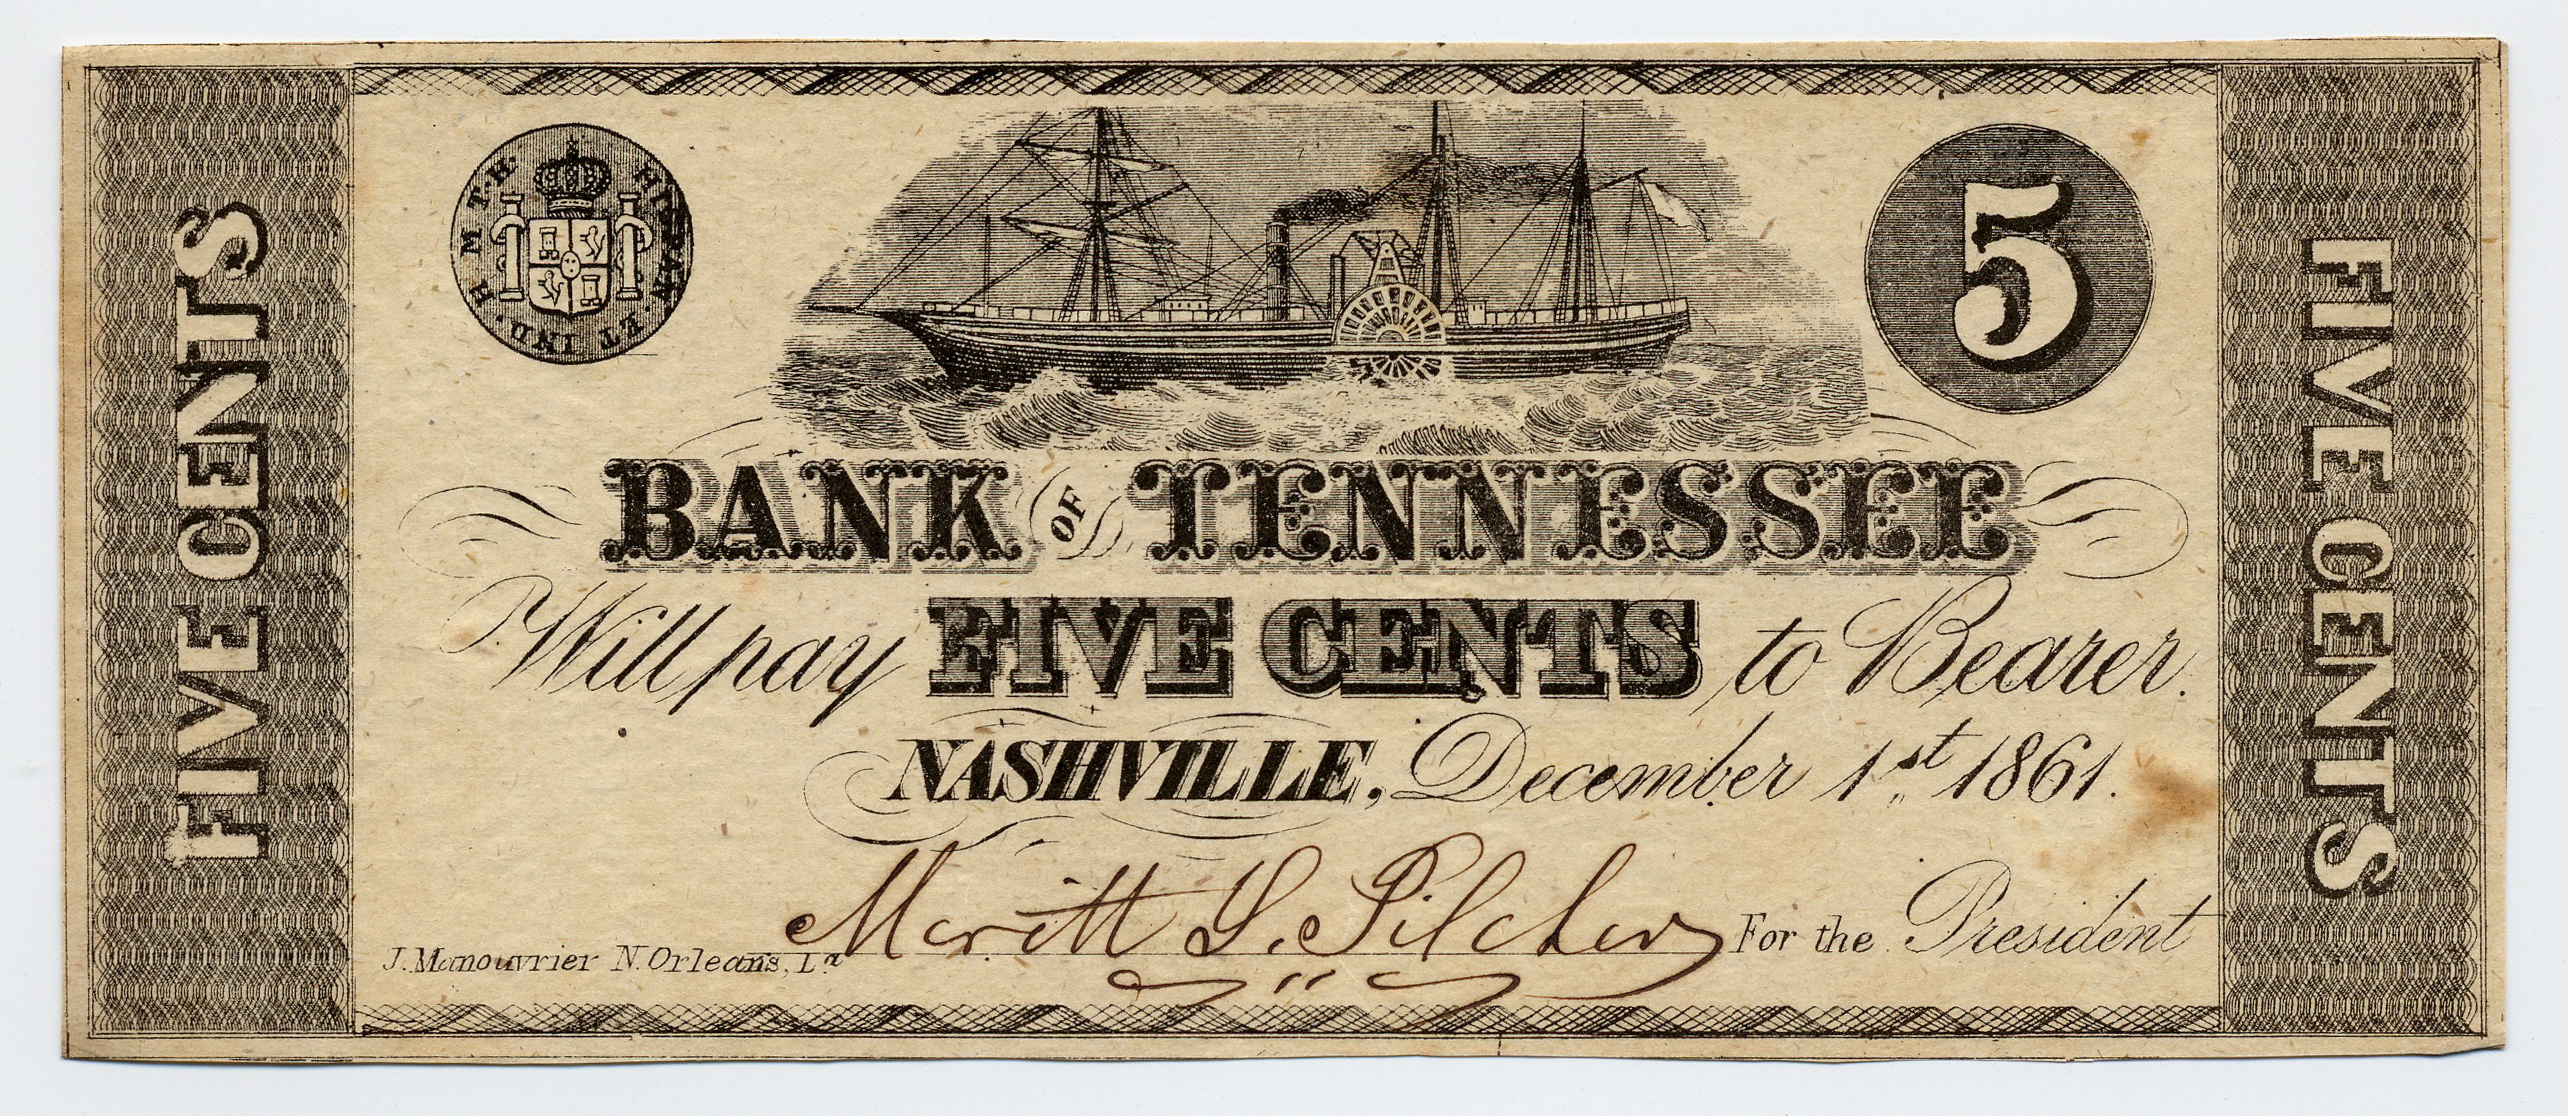 FIVE CENTS
H M T·R· HISPAN·ET IND·
5
BANK OF TENNESSEE
Will pay FIVE CENTS to Bearer.
NASHVILLE, December 1st 1861.
Meritt S. Pilcher For the President
J. Manouvrier N. Orleans, La
FIVE CENTS